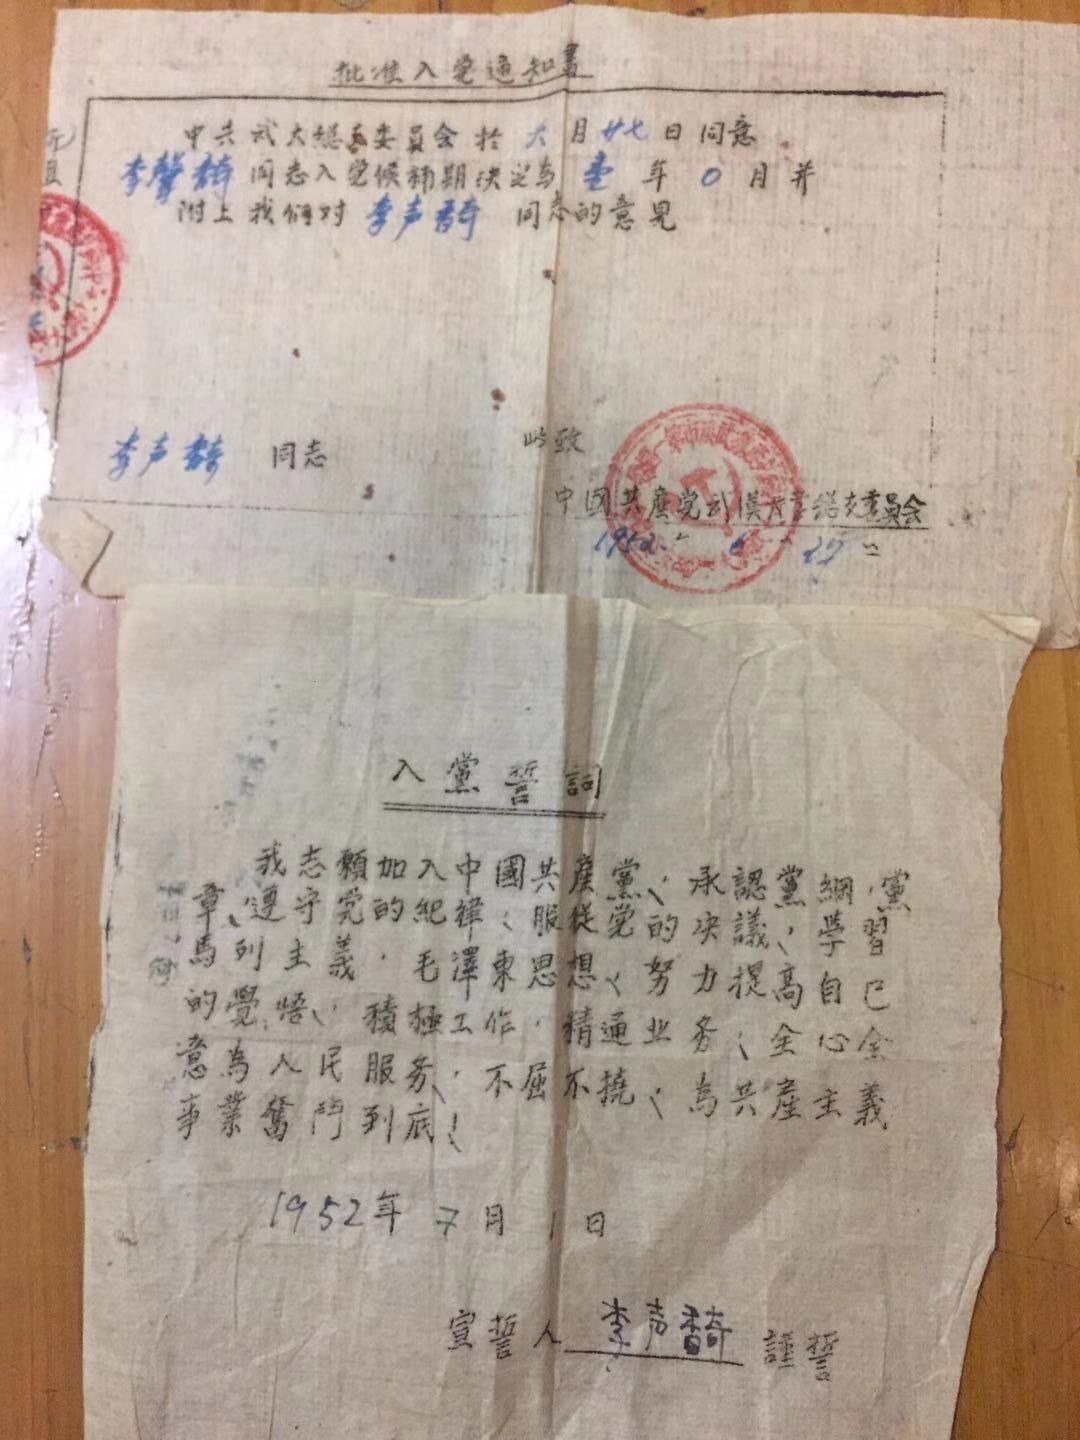 批准入党通知書
中共武大總支委員会於 六 月 廿七 日同意
李馨𬱖 同志入党候補期決定為 壹 年 0 月并
附上我们对 李声𬱖 同志的意見
此致
李声𬱖 同志
中國共產党武漢大学総支委員会
1952 6 27
入黨誓詞
我志願加入中國共産黨、承認黨綱、黨
章、遵守党的紀律、服從党的决議、學習
馬列主義、毛澤東思想、努力提高自己
的覺悟、積極工作、精通业务、全心全
意為人民服务、不屈不撓、為共產主義
事業奮鬥到底！
1952年 7月 1日
宣誓人 李声𬱖 謹誓